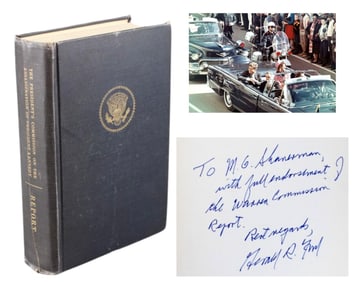 THE PRESIDENT'S COMMISSION ON THE
ASSASSINATION OF PRESIDENT KENNEDY
REPORT
To M. G. Shanerman,
with full endorsement of
the Warren Commission
Report.
Best regards,
Gerald R. Ford